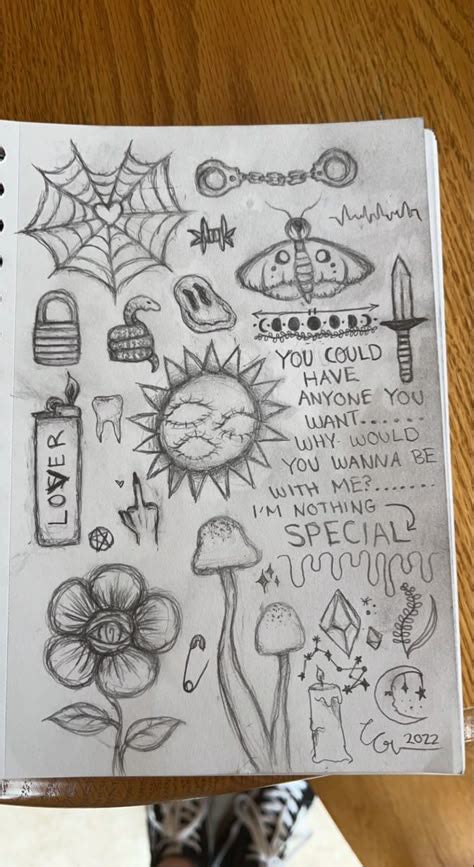 YOU COULD
HAVE
ANYONE YOU
WANT......
WHY WOULD
YOU WANNA BE
WITH ME?.......
I'M NOTHING
SPECIAL
LOVER
2022